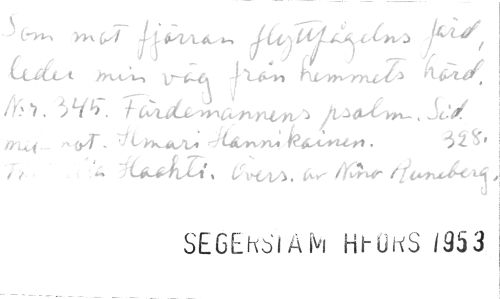 Som mot fjärran flyttfågelns färd,
leder min väg från hemmets härd.
N:r. 345. Färdemannens psalm. Sid.
not. Ilmari Hannikainen. 328.
Haahti. Övers. av Nino Runeberg.
SEGERSTAM HFORS 1953